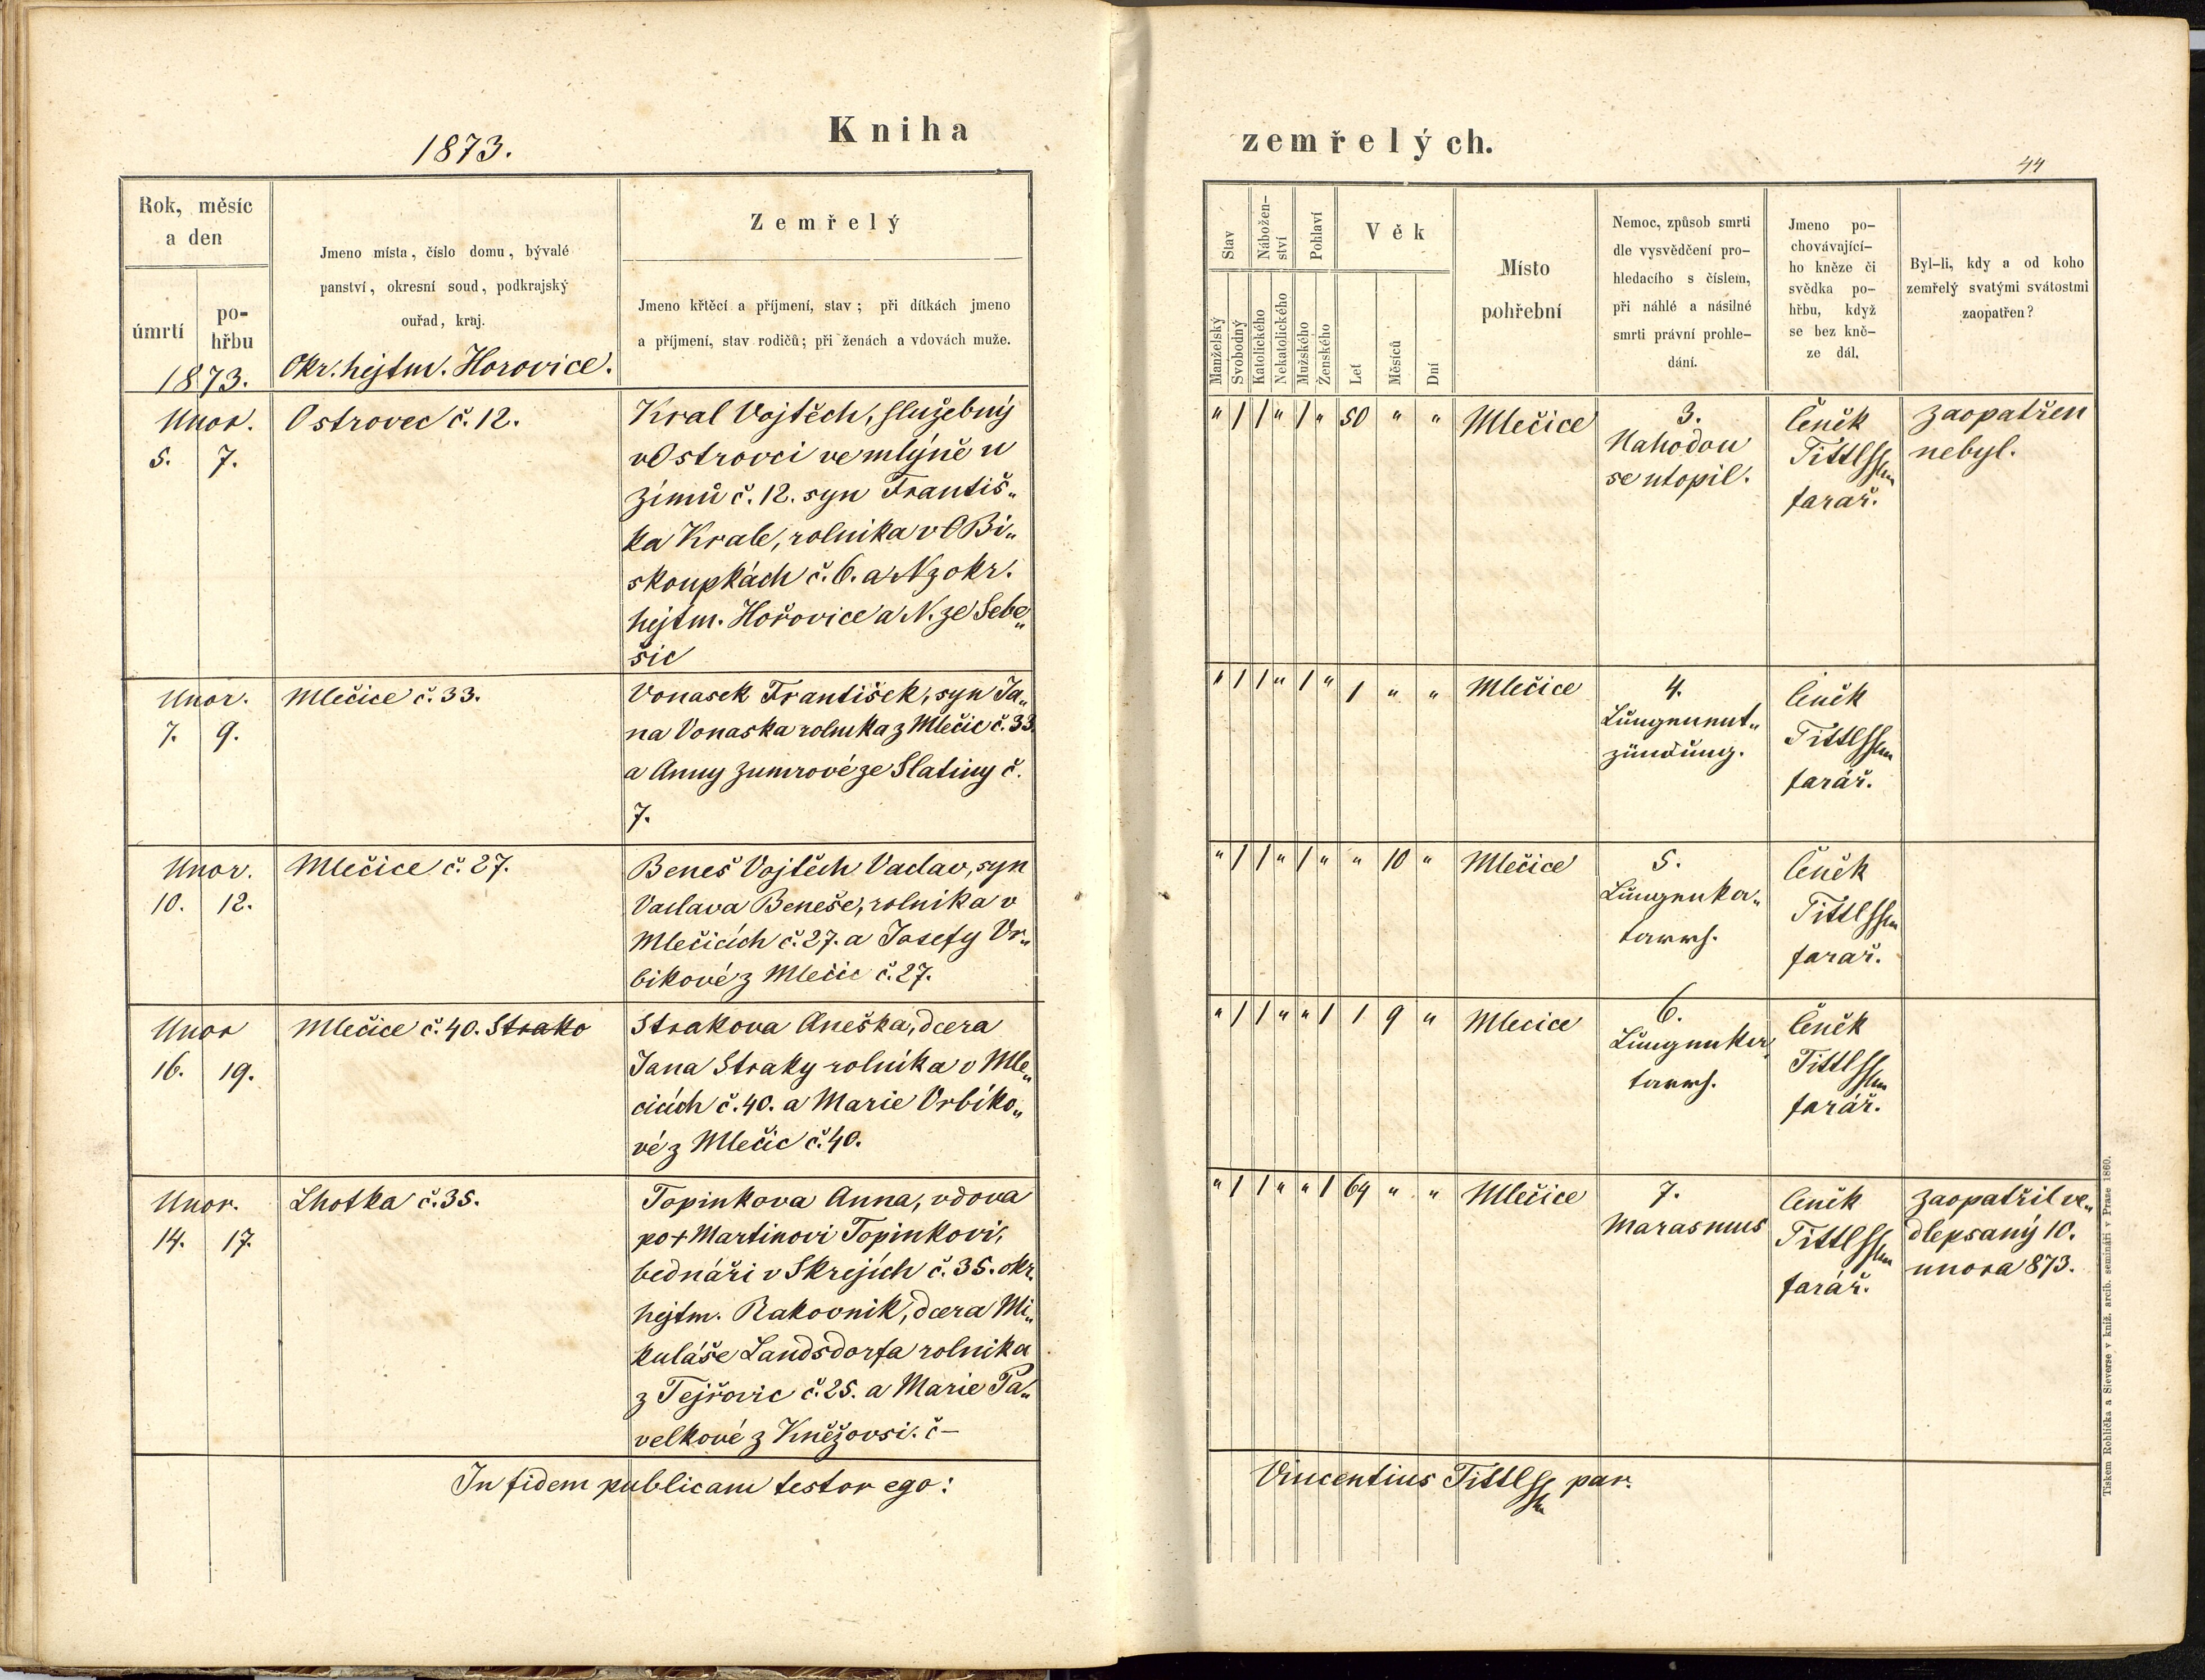 1873.
Kniha
Rok, měsíc
a den
úmrtí
po-
hřbu
1873.
Jmeno místa, číslo domu, bývalé
panství, okresní soud, podkrajský
ouřad, kraj.
Okr. hejtm. Horovice.
Zemřelý
Jmeno křtěcí a příjmení, stav; při dítkách jmeno
a příjmení, stav rodičů; při ženách a vdovách muže.
Unor.
5. 7.
Ostrovec č. 12.
Kral Vojtěch, služebný
v Ostrovci ve mlýně u
Zímů č. 12. syn Františ„
ka Krale, rolnika v Bi„
skoupkách č. 6. a N z okr.
hejtm. Hořovice a N. ze Sebe„
šic
Unor.
7. 9.
Mlečice č. 33.
Vonasek František, syn Ja„
na Vonaska rolnika z Mlečic č. 33.
a Anny Zumrové ze Slatiny č.
7.
Unor.
10. 12.
Mlečice č. 27.
Beneš Vojtěch Vaclav, syn
Vaclava Beneše, rolnika v
Mlečicích č. 27. a Josefy Vr„
bikové z Mlečic č. 27.
Unor
16. 19.
Mlečice č. 40. Strako
Strakova Aneška, dcera
Jana Straky rolníka v Mle„
cicích č. 40. a Marie Vrbíko„
vé z Mlečic č. 40.
Unor.
14. 17.
Lhotka č. 35.
Topinkova Anna, vdova
po + Martinovi Topinkovi,
bednáři v Skrejích č. 35. okr.
hejtm. Rakovnik, dcera Mi„
kuláše Landsdorfa rolnika
z Tejřovic č. 25. a Marie Pa„
velkové z Kněžovsi. č –
In fidem publicam testor ego:
zemřelých.
44
Stav
Manželský
Svobodný
Nábožen-
ství
Katolického
Nekatolického
Pohlaví
Mužského
Ženského
Věk
Let
Měsíců
Dní
Místo
pohřební
Nemoc, způsob smrti
dle vysvědčení pro-
hledacího s číslem,
při náhlé a násilné
smrti právní prohle-
dání.
Jmeno po-
chovávající-
ho kněze či
svědka po-
hřbu, když
se bez kně-
ze dál.
Byl-li, kdy a od koho
zemřelý svatými svátostmi
zaopatřen?
" 1 1 " 1 " 50 " "
Mlečice
3.
Nahodou
se utopil.
Čeněk
Tittl
farař.
Zaopatřen
nebyl.
" 1 1 " 1 " 1 " "
Mlečice
4.
Lungenent„
zündung.
Čeněk
Tittl
farář.
" 1 1 " 1 " " 10 "
Mlečice
5.
Lungenka„
tarrh.
Čeněk
Tittl
farař.
" 1 1 " " 1 1 9 "
Mlecice
6.
Lungenka„
tarrh.
Čeněk
Tittl
farář.
" 1 1 " " 1 64 " "
Mlečice
7.
Marasmus
Čeněk
Tittl
farář.
Zaopatřil ve„
dlepsaný 10.
unora 873.
Vincentius Tittl par.
Tiskem Rohlíčka a Sieverse v kníž. arcib. semináři v Praze 1860.